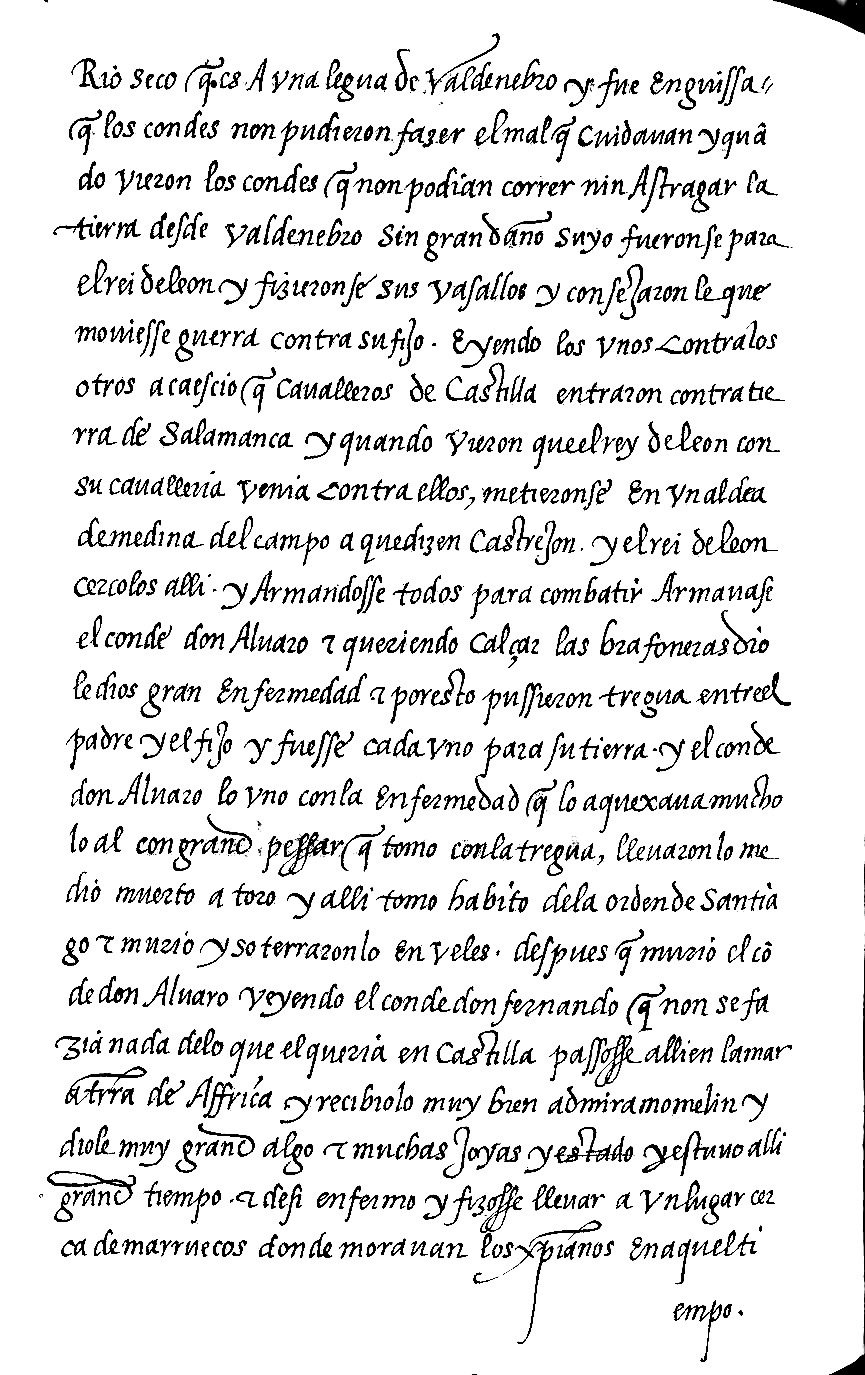 Rio seco q̃ es A vna legua de Valdenebro y fue Enguissa
q̃ los condes non pudieron fazer el mal q̃ Cuidauan y quã
do vieron los condes q̃ non podian correr nin Astragar la
tierra desde Valdenebro Sin grand año suyo fueronse para
el rei de leon y fizieronse sus vasallos y consejaron le que
mouiesse guerra contra su fijo. E yendo los vnos contra los
otros acaescio q̃ Caualleros de Castilla entraron contra tie
rra de Salamanca y quando vieron que el rey de leon con
su caualleria venia contra ellos, metieronse En vn aldea
de medina del campo a que dizen Castrejon. y el rei de leon
cercolos alli. y Armandosse todos para combatir Armauase
el conde don Aluaro ⁊ queriendo Calçar las brafoneras dio
le dios gran Enfermedad ⁊ por esto pussieron tregua entre el
padre y el fijo y fuesse cada vno para su tierra. y el conde
don Aluaro lo vno con la Enfermedad q̃ lo aquexaua mucho
lo al con grand pessar q̃ tomo con la tregua, lleuaron lo me
dio muerto a toro y alli tomo habito de la orden de Santia
go ⁊ murio y soterraronlo En veles. despues q̃ murio el cõ
de don Aluaro veyendo el conde don fernando q̃ non se fa
zia nada de lo que el queria en Castilla passosse allien la mar
a trra de Affrica y recibiolo muy bien admiramomelin y
diole muy grand algo ⁊ muchas Joyas y estado y estuuo alli
grand tiempo. ⁊ desi enfermo y fizosse lleuar a vn lugar cer
ca de marruecos donde morauan los xp̃ianos En aquel ti
empo.